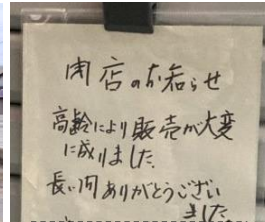 閉店のお知らせ
高齢により販売が大変
に成りました。
長い間ありがとうござい
ました